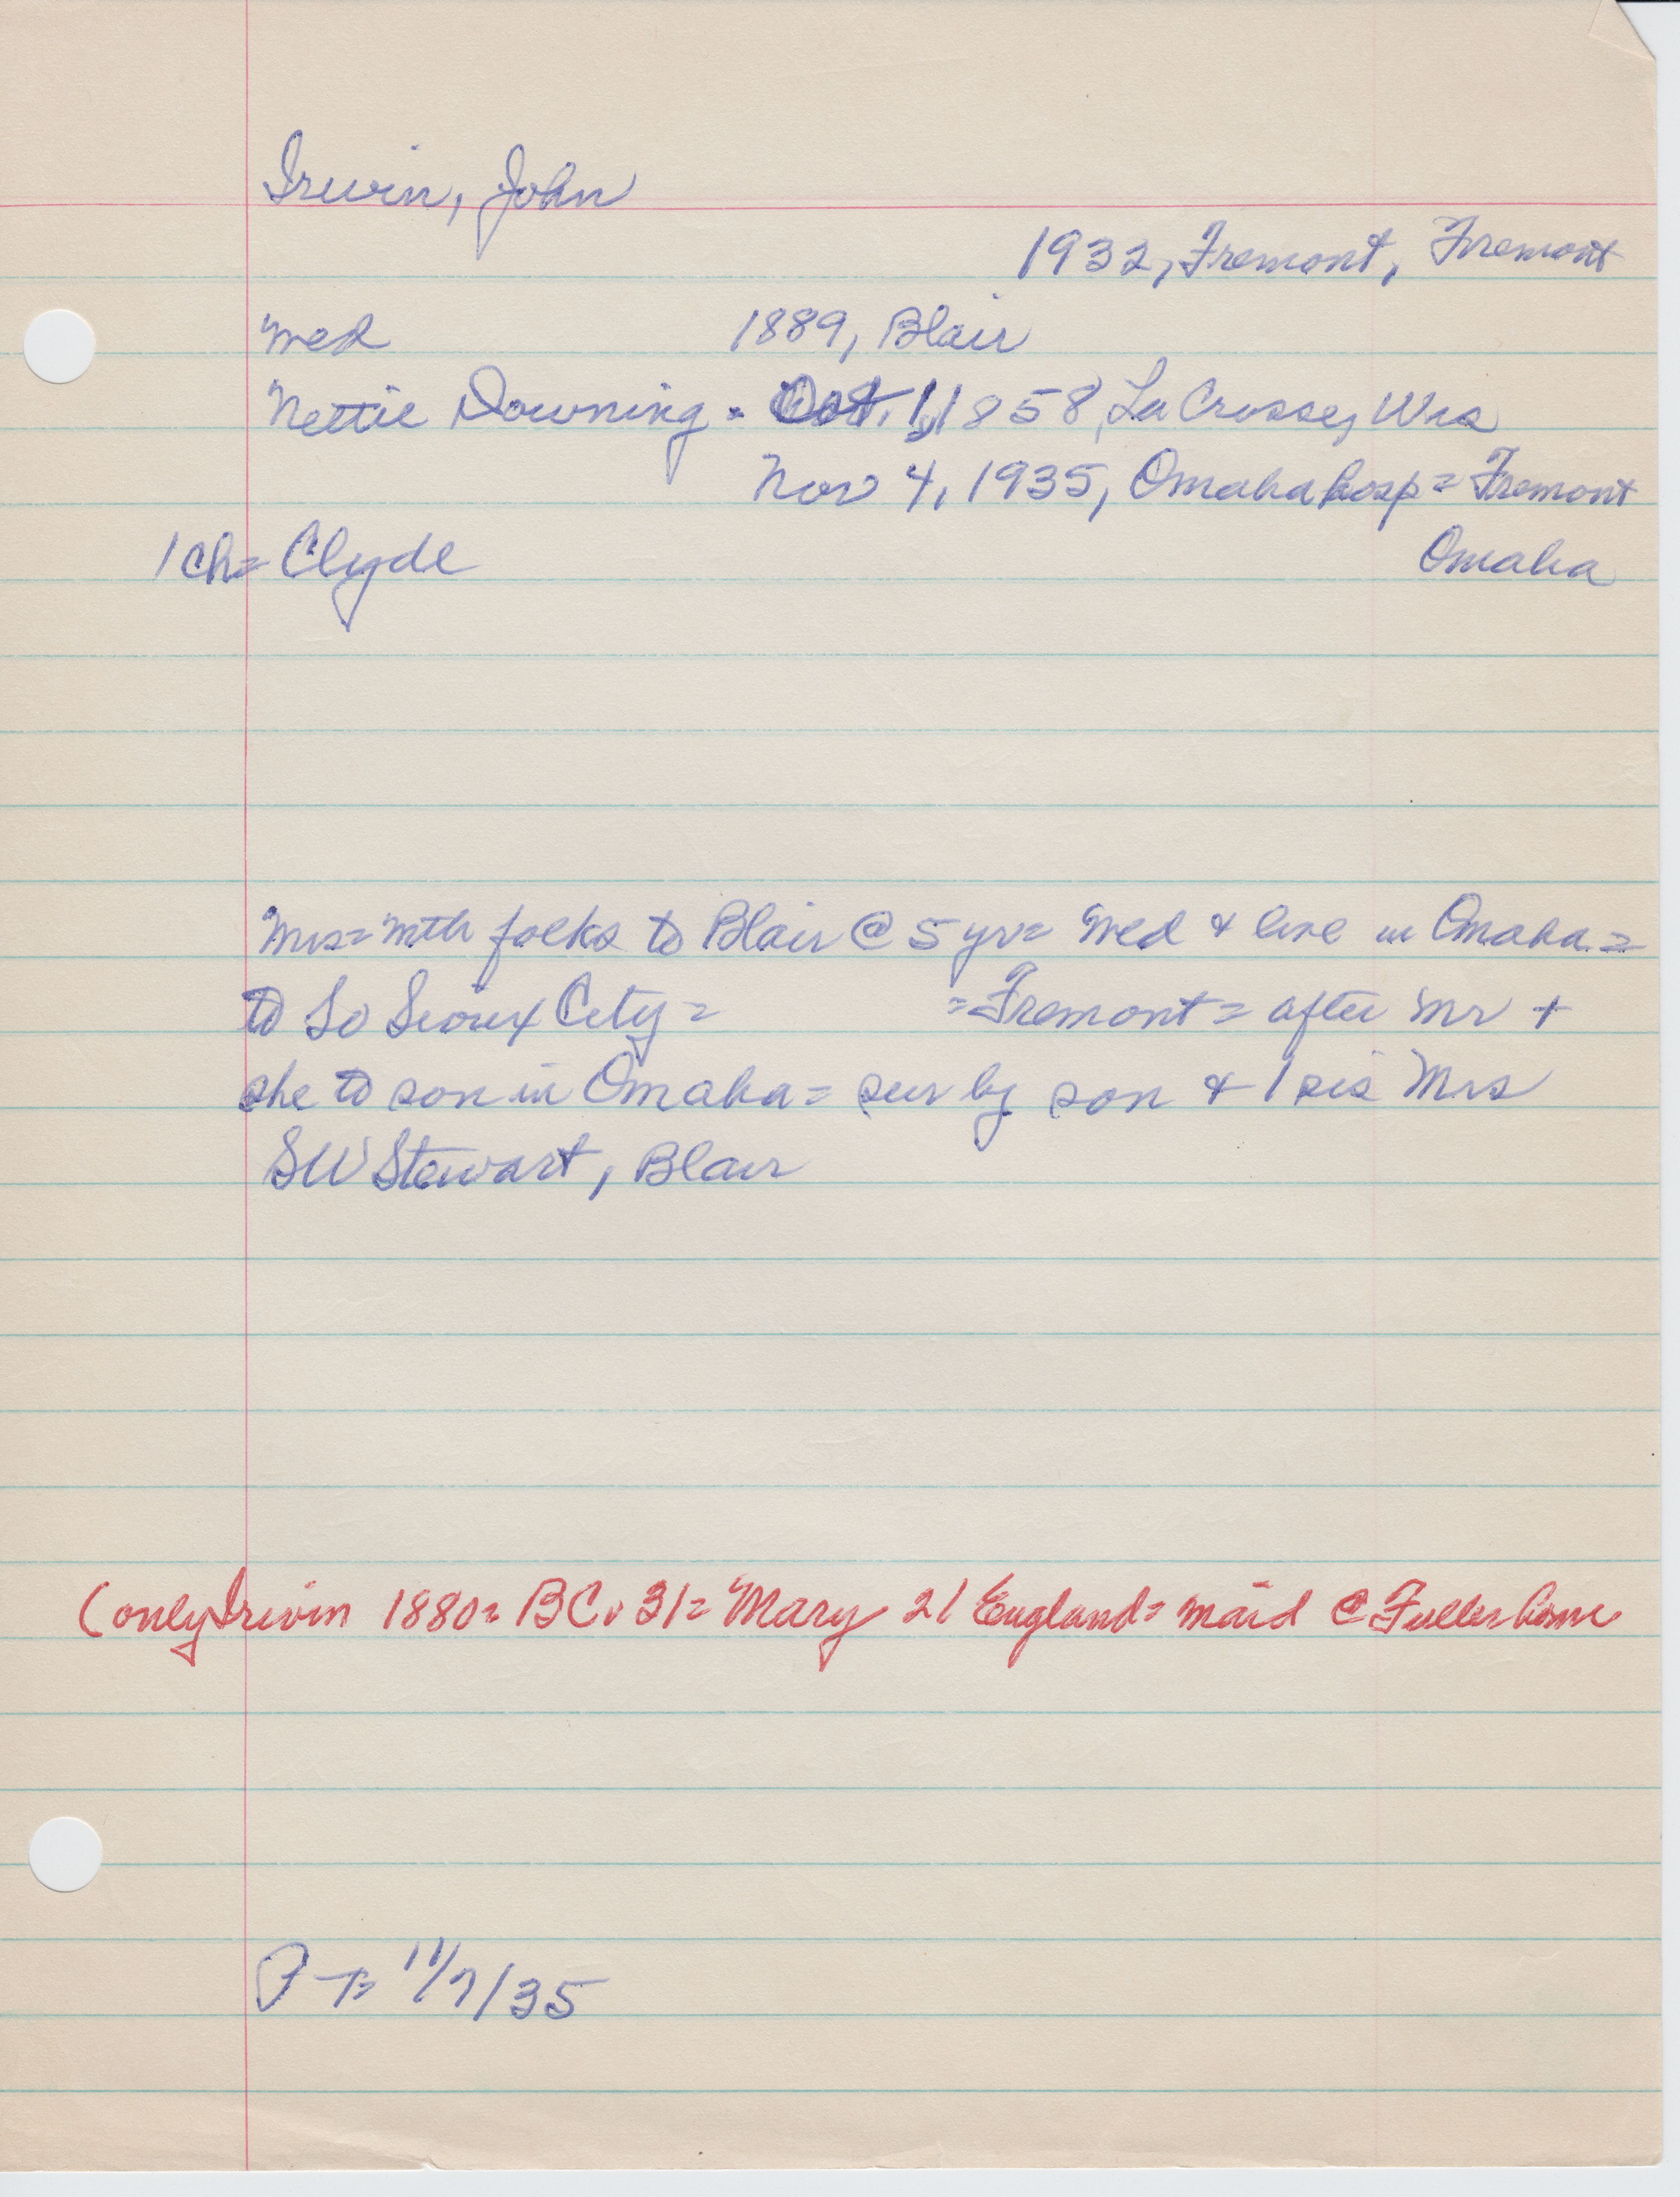 Irwin, John
1932, Fremont, Fremont
Wed 1889, Blair
Nettie Downing - Oct. 1, 1858, La Crosse, Wis
Nov 4, 1935, Omaha hosp = Fremont
1 ch = Clyde Omaha
Mrs = with folks to Blair @ 5 yr = Wed & live in Omaha =
to So Sioux City = = Fremont = after Mr +
she to son in Omaha = sur by son & 1 sis Mrs
SW Stewart, Blair
(only Irwin 1880 = BC v 31 = Mary 21 England = maid @ Fuller home
P T = 11/7/35